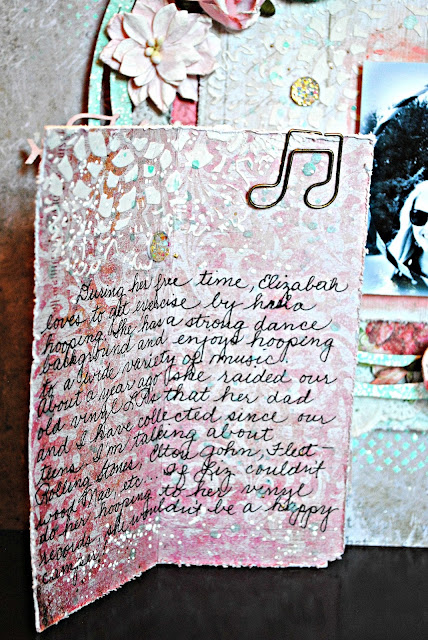 During her free time, Elizabeth
loves to get exercise by hula
hooping. She has a strong dance
background and enjoys hooping
to a wide variety of music.
About a year ago, she raided our
old vinyl LPs that her dad
and I have collected since our
teens. I'm talking about
Rolling Stones, Elton John, Fleet-
wood Mac, etc... If Liz couldn't
do her hooping to her vinyl
records, she wouldn't be a happy
camper!